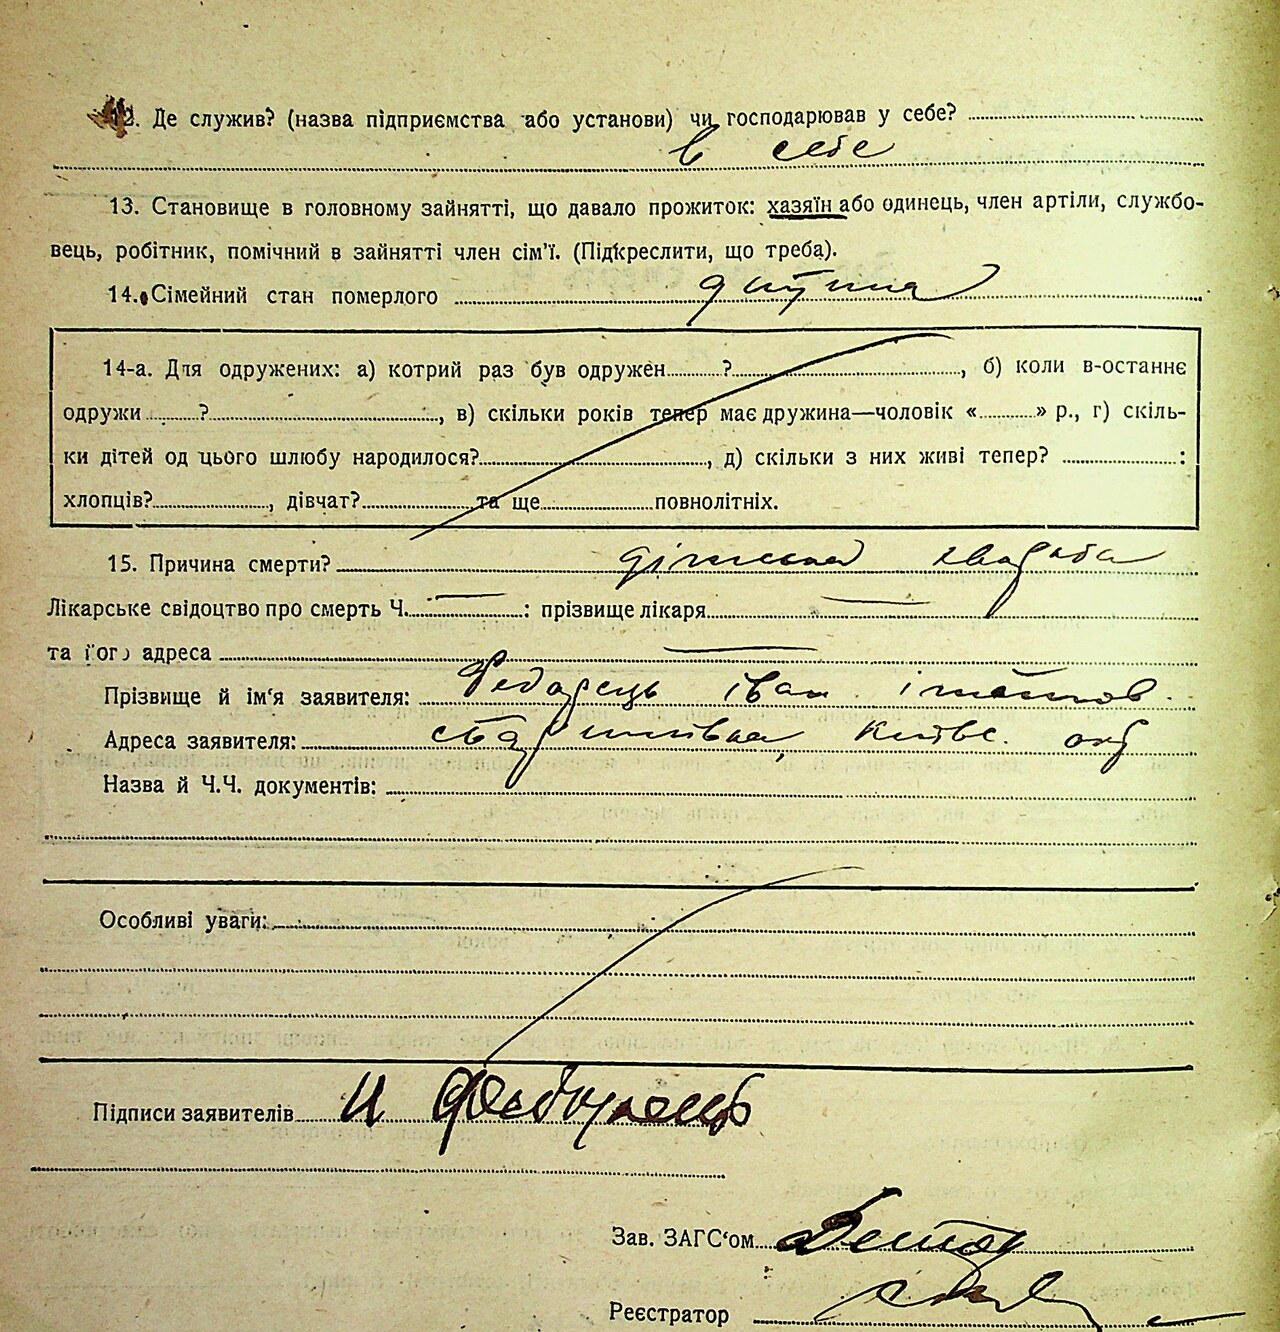 12. Де служив? (назва підприємства або установи) чи господарював у себе?
в себе
13. Становище в головному зайнятті, що давало прожиток: хазяїн або одинець, член артіли, службо-
вець, робітник, помічний в зайнятті член сім'ї. (Підкреслити, що треба).
14. Сімейний стан померлого дитина
14-а. Для одружених: а) котрий раз був одружен ?, б) коли в-останнє
одружи ?, в) скільки років тепер має дружина—чоловік « » р., г) скіль-
ки дітей од цього шлюбу народилося?, д) скільки з них живі тепер? :
хлопців?, дівчат? та ще повнолітніх.
15. Причина смерти? дітська хвороба
Лікарське свідоцтво про смерть Ч. : прізвище лікаря
та його адреса
Прізвище й ім'я заявителя: Федорець іван
Адреса заявителя: Київс. окр
Назва й Ч.Ч. документів:
Особливі уваги:
Підписи заявителів И
Зав. ЗАГС'ом
Реєстратор